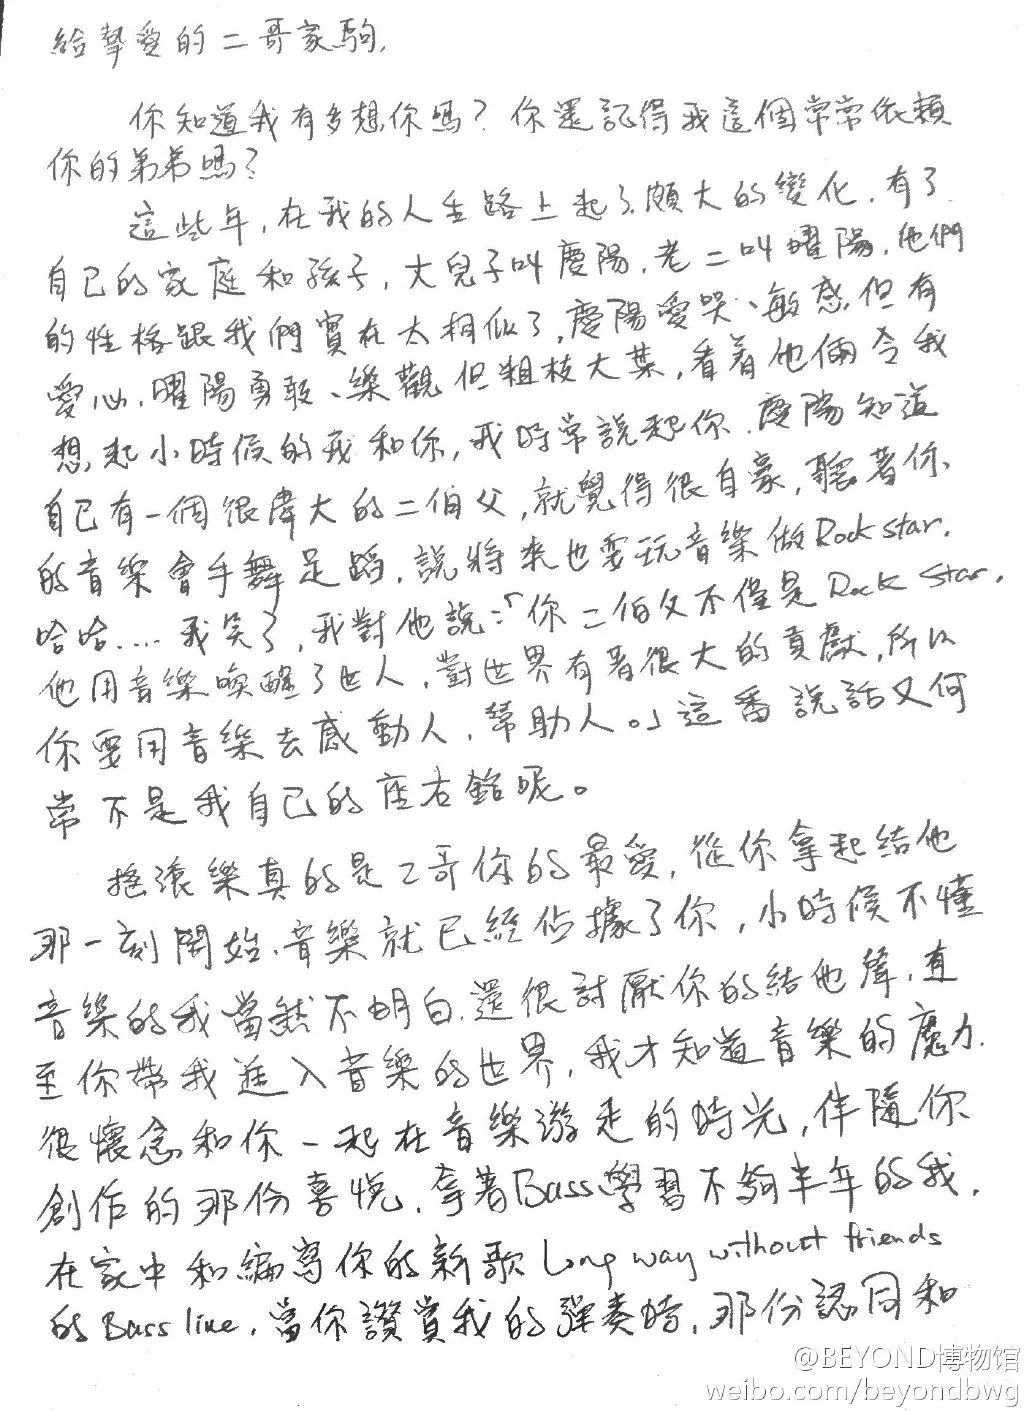 給摯愛的二哥家駒,
你知道我有多想你嗎？你還記得我這個常常依賴
你的弟弟嗎？
這些年,在我的人生路上起了頗大的變化,有了
自己的家庭和孩子,大兒子叫慶陽,老二叫曜陽,他們
的性格跟我們實在太相似了,慶陽愛哭、敏感但有
愛心,曜陽勇敢、樂觀但粗枝大葉,看着他倆令我
想起小時候的我和你,我時常說起你,慶陽知道
自已有一個很偉大的二伯父,就覺得很自豪,聽著你
的音樂會手舞足蹈,說將來也要玩音樂做Rock star.
哈哈....我笑了,我對他說:「你二伯父不僅是Rock Star,
他用音樂喚醒了世人,對世界有著很大的貢獻,所以
你要用音樂去感動人,幫助人。」這番說話又何
常不是我自己的座右銘呢。
搖滾樂真的是二哥你的最愛,從你拿起結他
那一刻開始,音樂就已經佔據了你,小時候不懂
音樂的我當然不明白,還很討厭你的結他聲,直
至你帶我進入音樂的世界,我才知道音樂的魔力.
很懷念和你一起在音樂游走的時光,伴隨你
創作的那份喜悅,拿著Bass學習不夠半年的我,
在家中和編寫你的新歌Long way without friends
的Bass line,當你讚賞我的彈奏時,那份認同和
@BEYOND博物馆
weibo.com/beyondbwg